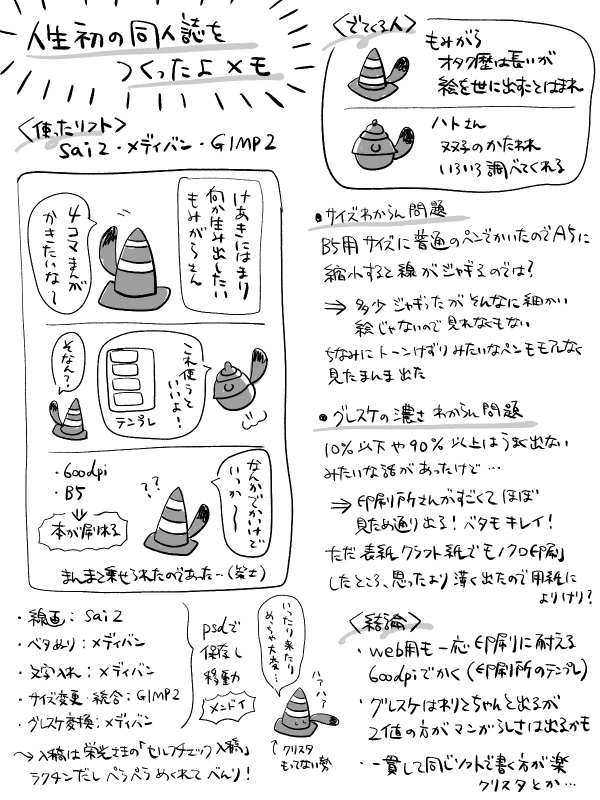 人生初の同人誌を
つくったよメモ
〈使ったソフト〉
sai2・メディバン・GIMP2
けあきにはまり
何か生み出したい
もみがらさん
4コマまんが
かきたいな〜
これ使うと
いいよ!
テンプレ
そなん?
・600dpi
・B5
⇓
本が届けれる
なんかでかいけど
いっか〜
??
まんまと乗せられたのであった…(策士)
・線画:sai2
・ベタぬり:メディバン
・文字入れ:メディバン
・サイズ変更・統合:GIMP2
・グレスケ変換:メディバン
psdで
保存し
移動
メンドイ
いったり来たり
めっちゃ大変…
ハァハァ
↑クリスタ
もってない勢
〜→入稿は栄光さまの「セルフチェック入稿」
ラクチンだしペラペラめくれてべんり!
〈でてくる人〉
もみがら
オタク歴は長いが
絵を世に出すことはまれ
ハトさん
双子のかたわれ
いろいろ調べてくれる
●サイズわからん問題
B5用サイズに普通のペンでかいたのでA5に
縮小すると線がジャギるのでは?
⇒多少ジャギったがそんなに細かい
絵じゃないので見れなくもない
ちなみにトーンけずりみたいなペンもモアレなく
見たまんま出た
●グレスケの濃さわからん問題
10%以下や90%以上はうまく出ない
みたいな話があったけど…
⇒印刷所さんがすごくてほぼ
見ため通り出る!ベタもキレイ!
ただ表紙クラフト紙でモノクロ印刷
したところ、思ったより薄く出たので用紙に
よりけり?
〈結論〉
・web用も一応印刷に耐える
600dpiでかく(印刷所のテンプレ)
・グレスケはわりとちゃんと出るが
2値の方がマンガらしさは出るかも
・一貫して同じソフトで書く方が楽
クリスタとか…